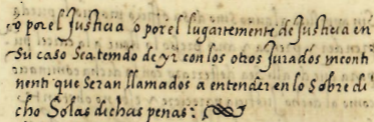 o por el Justicia o por el lugartiniente de Justicia en
su caso sea tenido de yr con los otros Jurados incont
nenti que seran llamados a entender en lo sobre di
cho so las dichas penas: